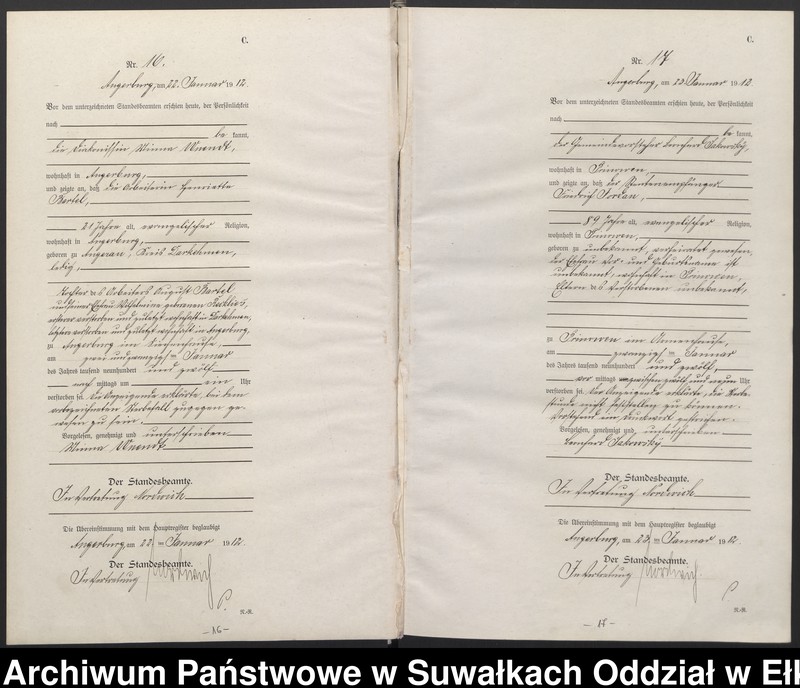 C.
Nr. 16.
Angerburg, am 22. Januar 1912.
Vor dem unterzeichneten Standesbeamten erschien heute, der Persönlichkeit
nach
be kannt,
die Diakonissin, Minna
wohnhaft in Angerburg,
und zeigte an, daß die Arbeiterin Henriette
Bartel,
21 Jahre alt, evangelischer Religion,
wohnhaft in Angerburg,
geboren zu Kreis Darkehmen,
ledig,
Tochter des Arbeiters August Bartel
und seiner Ehefrau geborenen
ersterer verstorben und zuletzt wohnhaft in Darkehmen,
letztere verstorben und zuletzt wohnhaft in Angerburg,
zu Angerburg im
am zwei und zwanzigsten Januar
des Jahres tausend neunhundert und zwölf
nach mittags um ein Uhr
verstorben sei. Die Anzeigende erklärte, bei dem
vorbezeichneten Sterbefall zugegen ge-
wesen zu sein.
Vorgelesen, genehmigt und unterschrieben
Minna
Der Standesbeamte.
In Vertretung
Die Übereinstimmung mit dem Hauptregister beglaubigt
Angerburg, am 22 ten Januar 1912.
Der Standesbeamte.
In Vertretung
N.-R.
— 16 —
C.
Nr. 17
Angerburg, am 23. Januar 1912.
Vor dem unterzeichneten Standesbeamten erschien heute, der Persönlichkeit
nach
be kannt,
der Gemeindevorsteher Bernhard
wohnhaft in
und zeigte an, daß der Rentenempfänger
Friedrich Jordan,
89 Jahre alt, evangelischer Religion,
wohnhaft in
geboren zu unbekannt, verheiratet gewesen,
der Ehefrau Vor- und Geburtsname ist
unbekannt, wohnhaft in
Eltern des Verstorbenen unbekannt,
zu im Armenhause,
am zwanzigsten Januar
des Jahres tausend neunhundert und zwölf,
vor mittags zwischen zwölf und neun Uhr
verstorben sei. Der Anzeigende erklärte, die Sterbe-
stunde nicht feststellen zu können.
Vorstehend ein Druckwort gestrichen.
Vorgelesen, genehmigt und unterschrieben
Bernhard
Der Standesbeamte.
In Vertretung
Die Übereinstimmung mit dem Hauptregister beglaubigt
Angerburg, am 23. ten Januar 1912.
Der Standesbeamte.
In Vertretung
N.-R.
— 17 —
Archiwum Państwowe w Suwałkach Oddział w Ełk